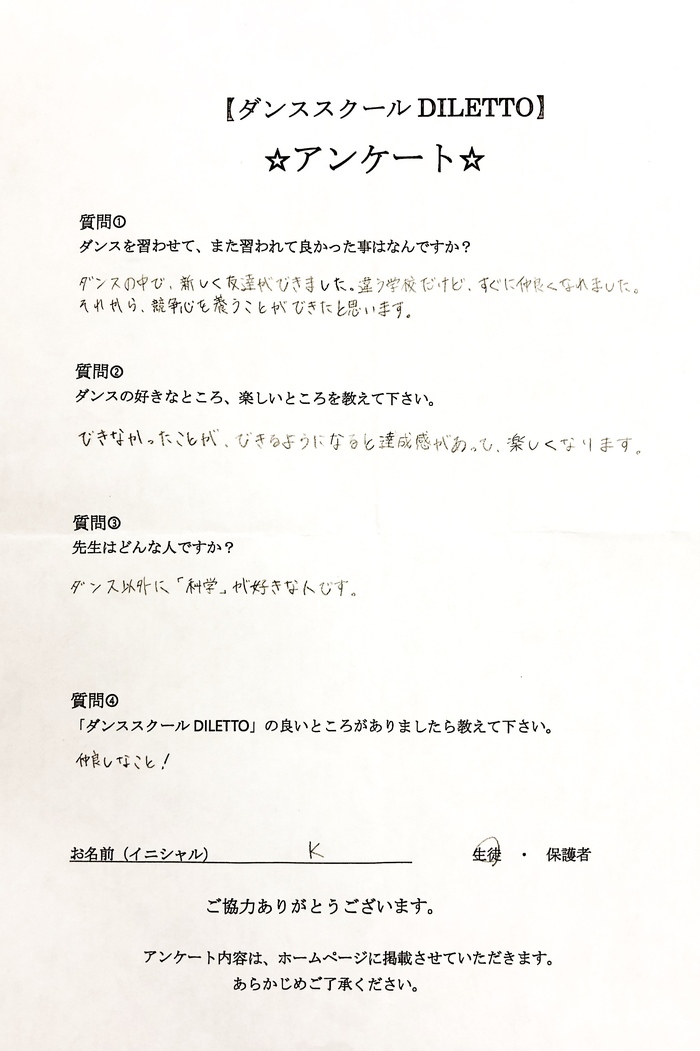 【ダンススクール DILETTO】
☆アンケート☆
質問①
ダンスを習わせて、また習われて良かった事はなんですか？
ダンスの中で、新しく友達ができました。違う学校だけど、すぐに仲良くなれました。
それから、競争心を養うことができたと思います。
質問②
ダンスの好きなところ、楽しいところを教えて下さい。
できなかったことが、できるようになると達成感があって、楽しくなります。
質問③
先生はどんな人ですか？
ダンス以外に「科学」が好きな人です。
質問④
「ダンススクール DILETTO」の良いところがありましたら教えて下さい。
仲良しなこと！
お名前（イニシャル） K 生徒 ・ 保護者
ご協力ありがとうございます。
アンケート内容は、ホームページに掲載させていただきます。
あらかじめご了承ください。